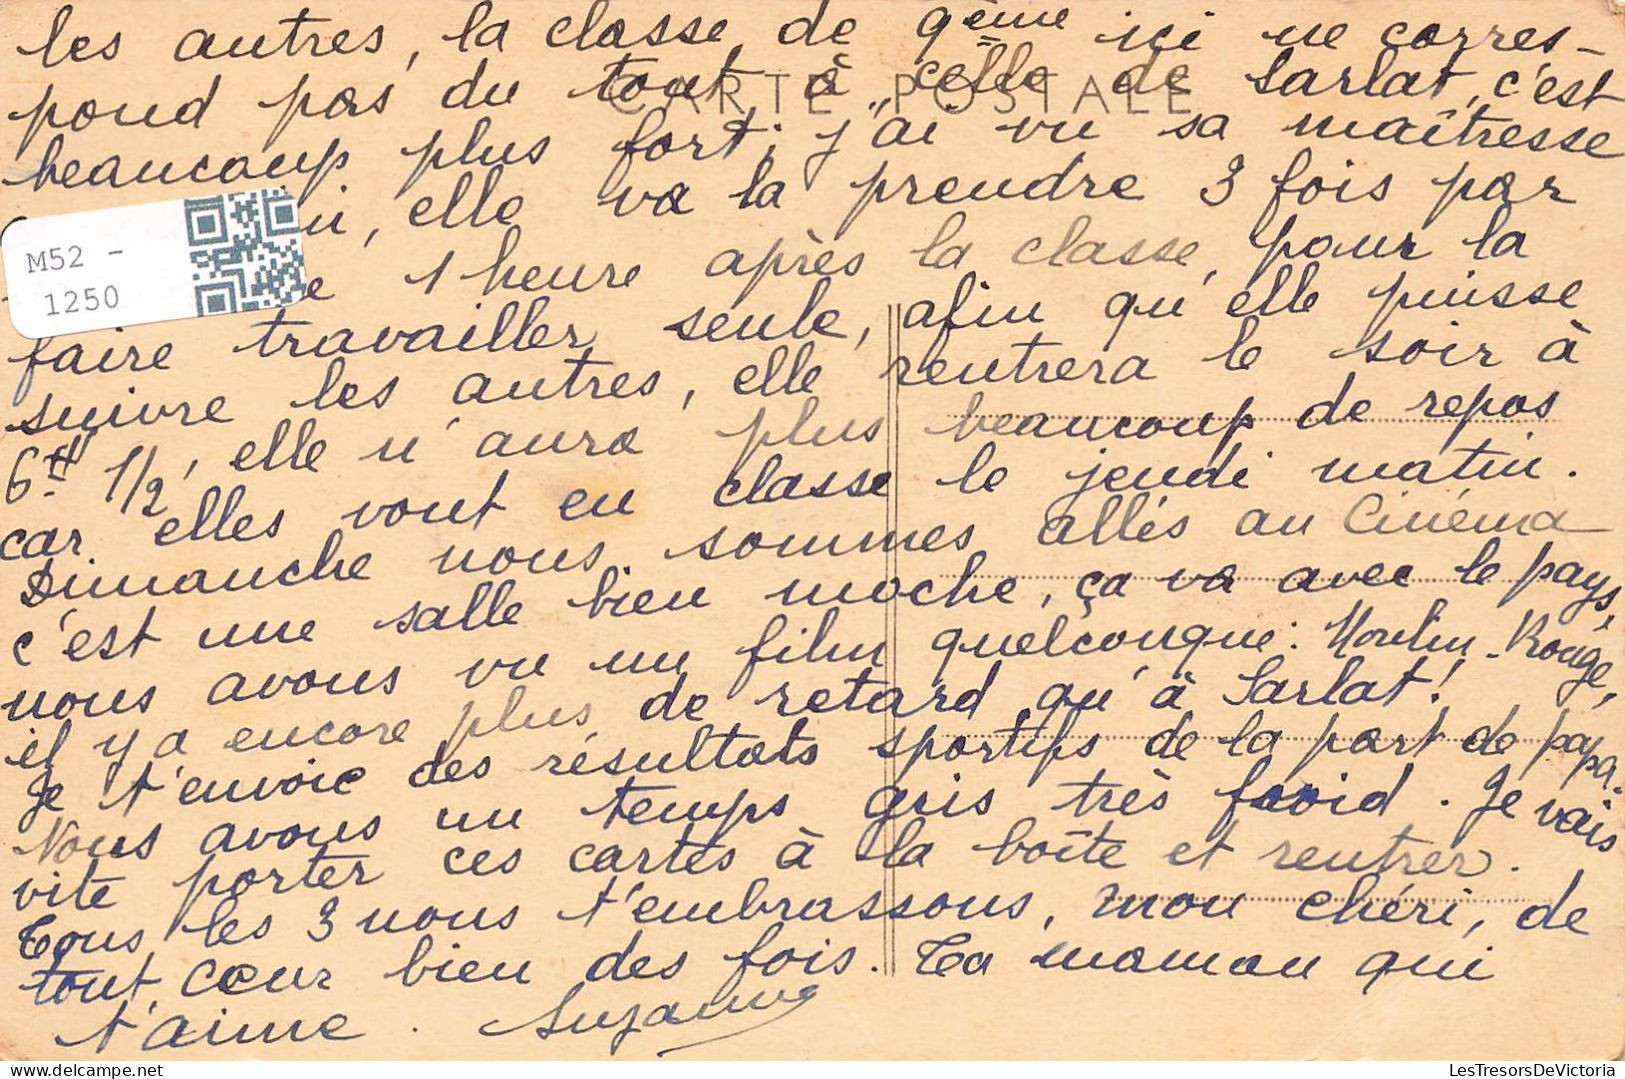 les autres, la classe de 9ème ici ne corres-
CARTE POSTALE
pond pas du tout à celle de Sarlat, c'est
beaucoup plus fort; j'ai vu sa maîtresse
ui, elle va la prendre 3 fois par
M52 -
1250
e 1 heure après la classe, pour la
faire travailler seule, afin qu'elle puisse
suivre les autres, elle rentrera le soir à
6H 1/2, elle n'aura plus beaucoup de repos
car elles vont en classe le jeudi matin.
Dimanche nous sommes allés au Cinéma
c'est une salle bien moche, ça va avec le pays,
nous avons vu un film quelconque: Moulin-Rouge,
il y a encore plus de retard qu'à Sarlat!
Je t'envoie des résultats sportifs de la part de papa.
Nous avons un temps gris très froid. Je vais
vite porter ces cartes à la boîte et rentrer.
Tous les 3 nous t'embrassons, mon chéri, de
tout cœur bien des fois. Ta maman qui
t'aime. Suzanne
LesTresorsDeVictoria